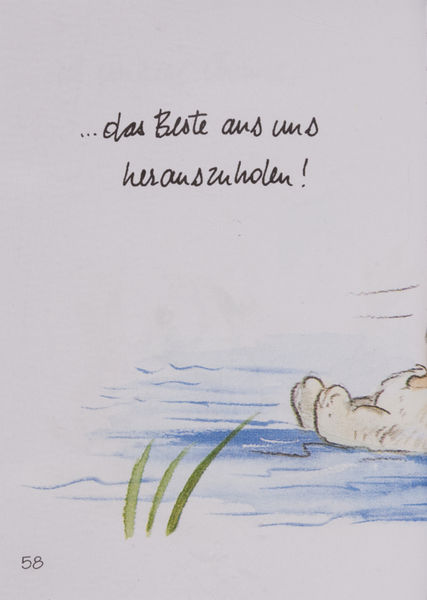 ...das Beste aus uns
herauszuholen!
58